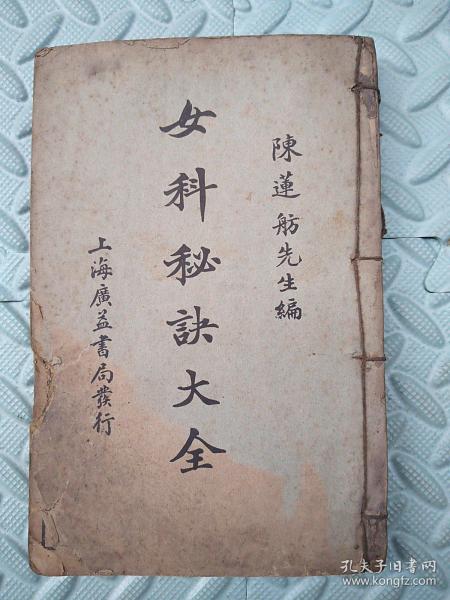 陳蓮舫先生編
女科秘訣大全
上海廣益書局發行
孔夫子旧书网
www.kongfz.com